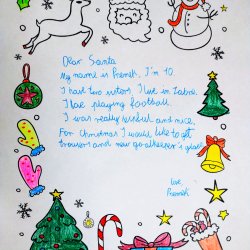 Dear Santa
My name is Přemek, I'm 10.
I have two sisters I live in Zábře.
I love playing football.
I was really kindul and nice.
For Christmas I would like to get
trousers and new goalkeeper's gloves
love
Přemek